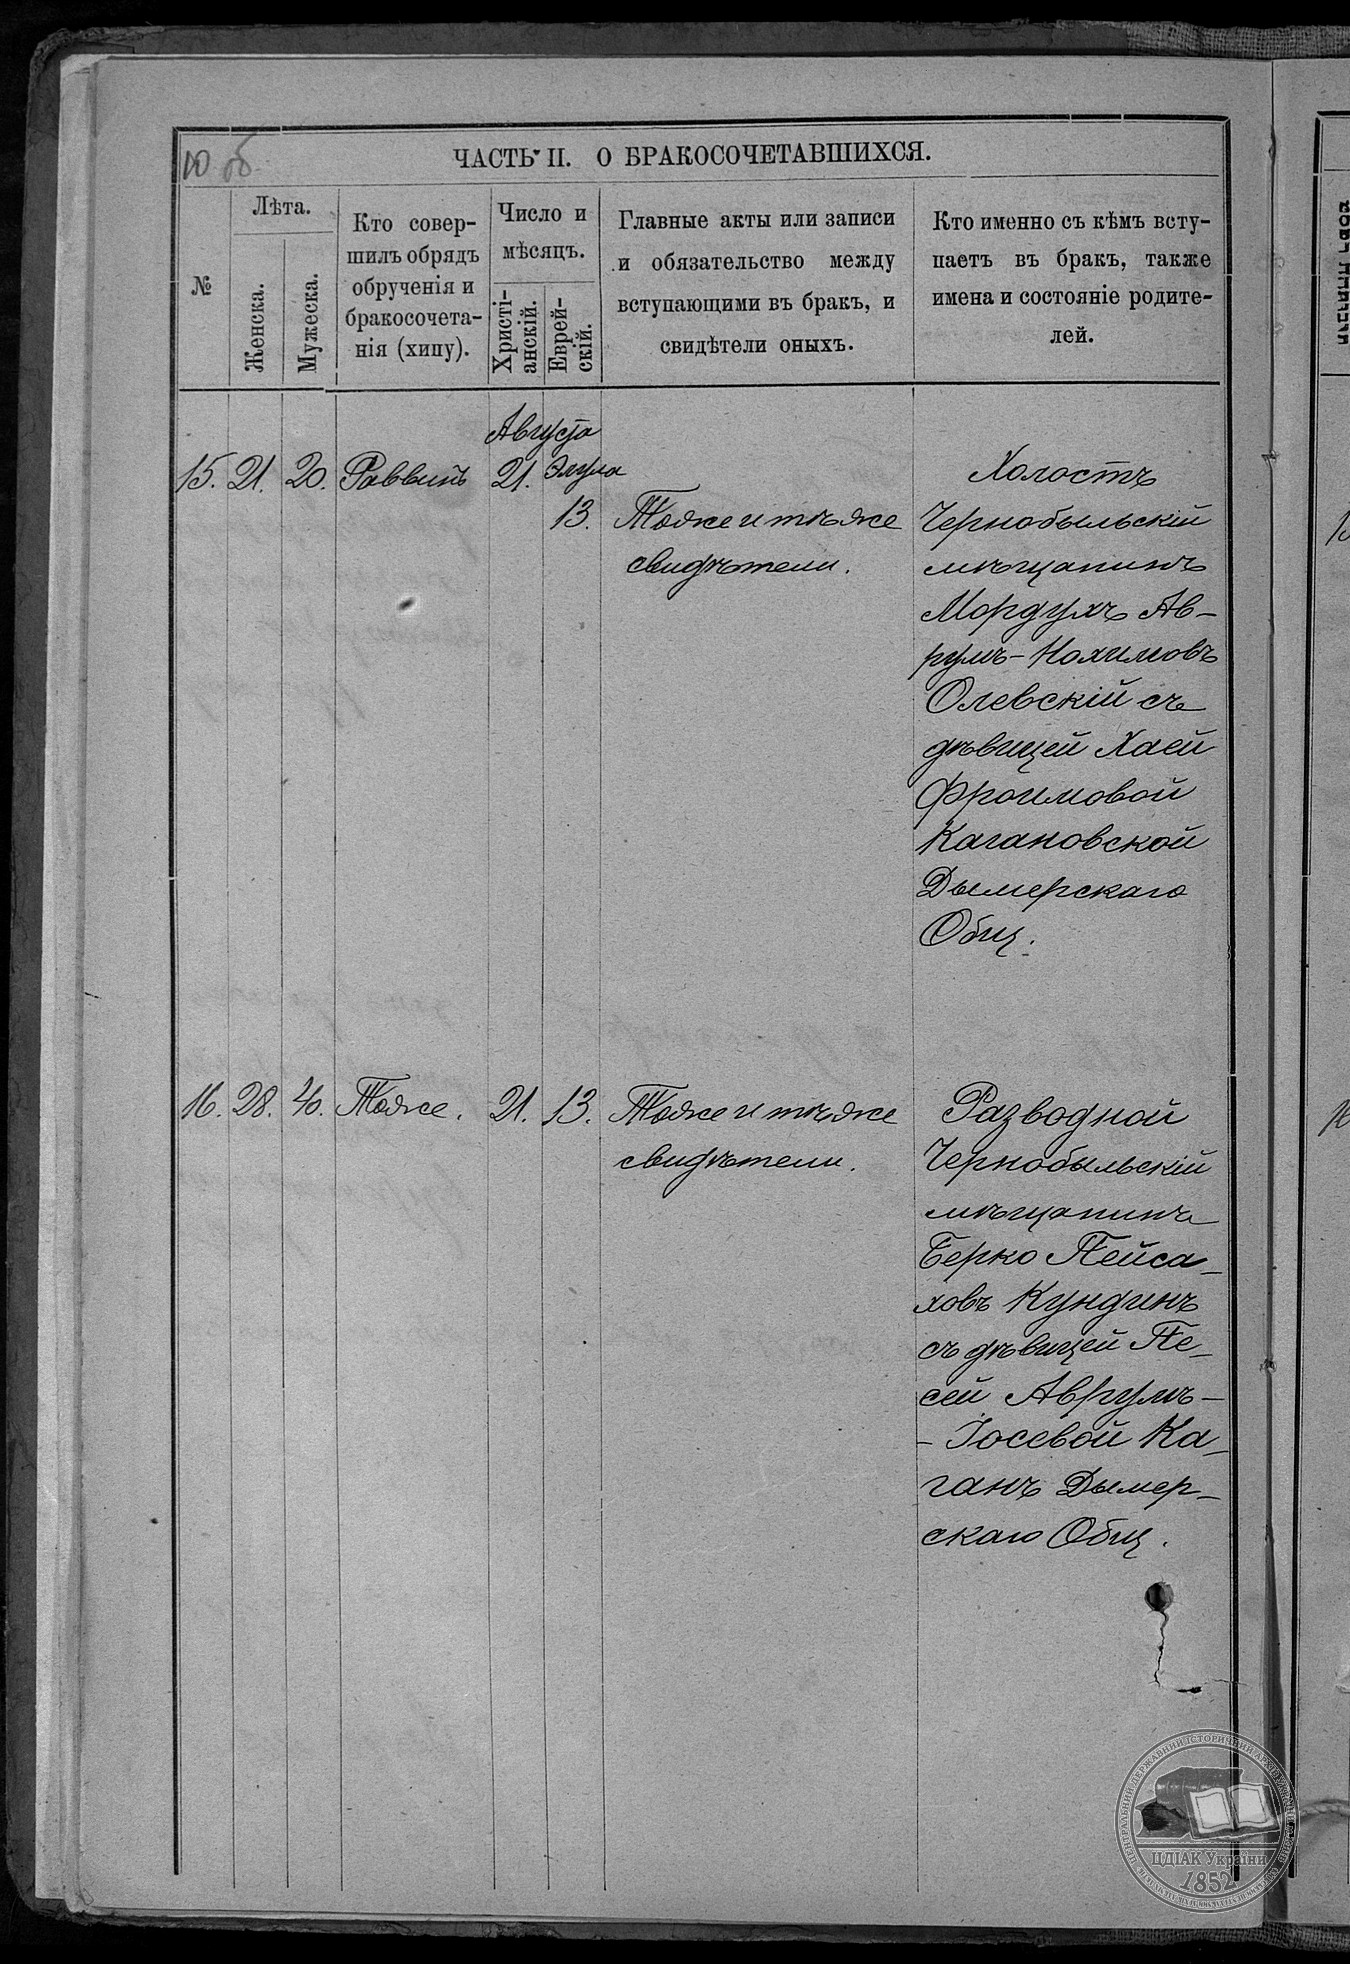 10 об.
ЧАСТЬ II. О БРАКОСОЧЕТАВШИХСЯ.
№
Лѣта.
Женска.
Мужеска.
Кто совер-
шилъ обрядъ
обрученія и
бракосочета-
нія (хипу).
Число и
мѣсяцъ.
Христі-
анскій.
Еврей-
скій.
Главные акты или записи
и обязательство между
вступающими въ бракъ, и
свидѣтели оныхъ.
Кто именно съ кѣмъ всту-
паетъ въ бракъ, также
имена и состояніе родите-
лей.
Августа
15. 21. 20. Раввинъ 21. Элула
13. Тоже и тѣ же
свидѣтели.
Холостъ
Чернобыльскій
мѣщанинъ
Мордухъ Ав-
румъ-Нохимовъ
Олевскій съ
дѣвицей Хаей
Фроимовой
Кагановской
Дымерскаго
Общ.
16. 28. 40. Тоже. 21. 13. Тоже и тѣ же
свидѣтели.
Разводной
Чернобыльскій
мѣщанинъ
Берко Пейса-
ховъ Кундинъ
съ дѣвицей Пе-
сей Аврумъ-
-Іосевой Ка-
ганъ Дымер-
скаго Общ.
ЦДІАК України
1852